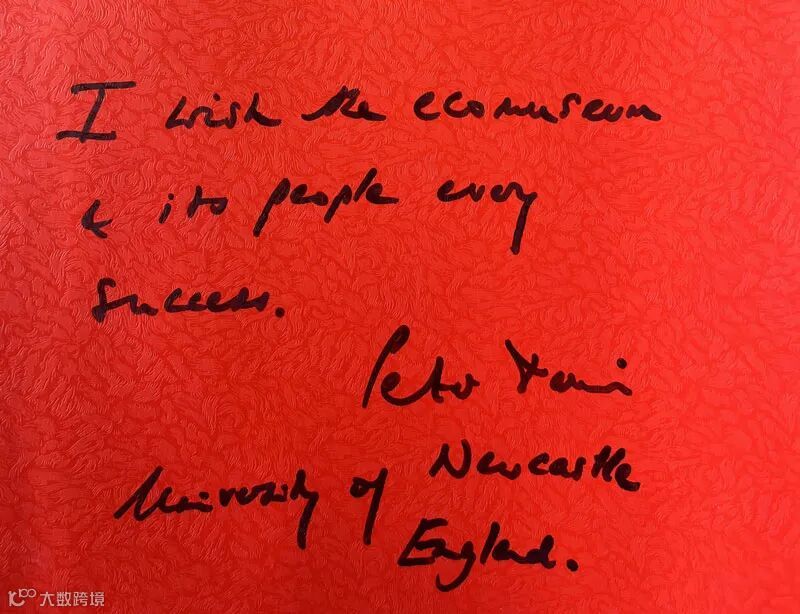 I wish the ecomuseum
& its people every
success.
Peter Davis
University of Newcastle
England.
大数跨境